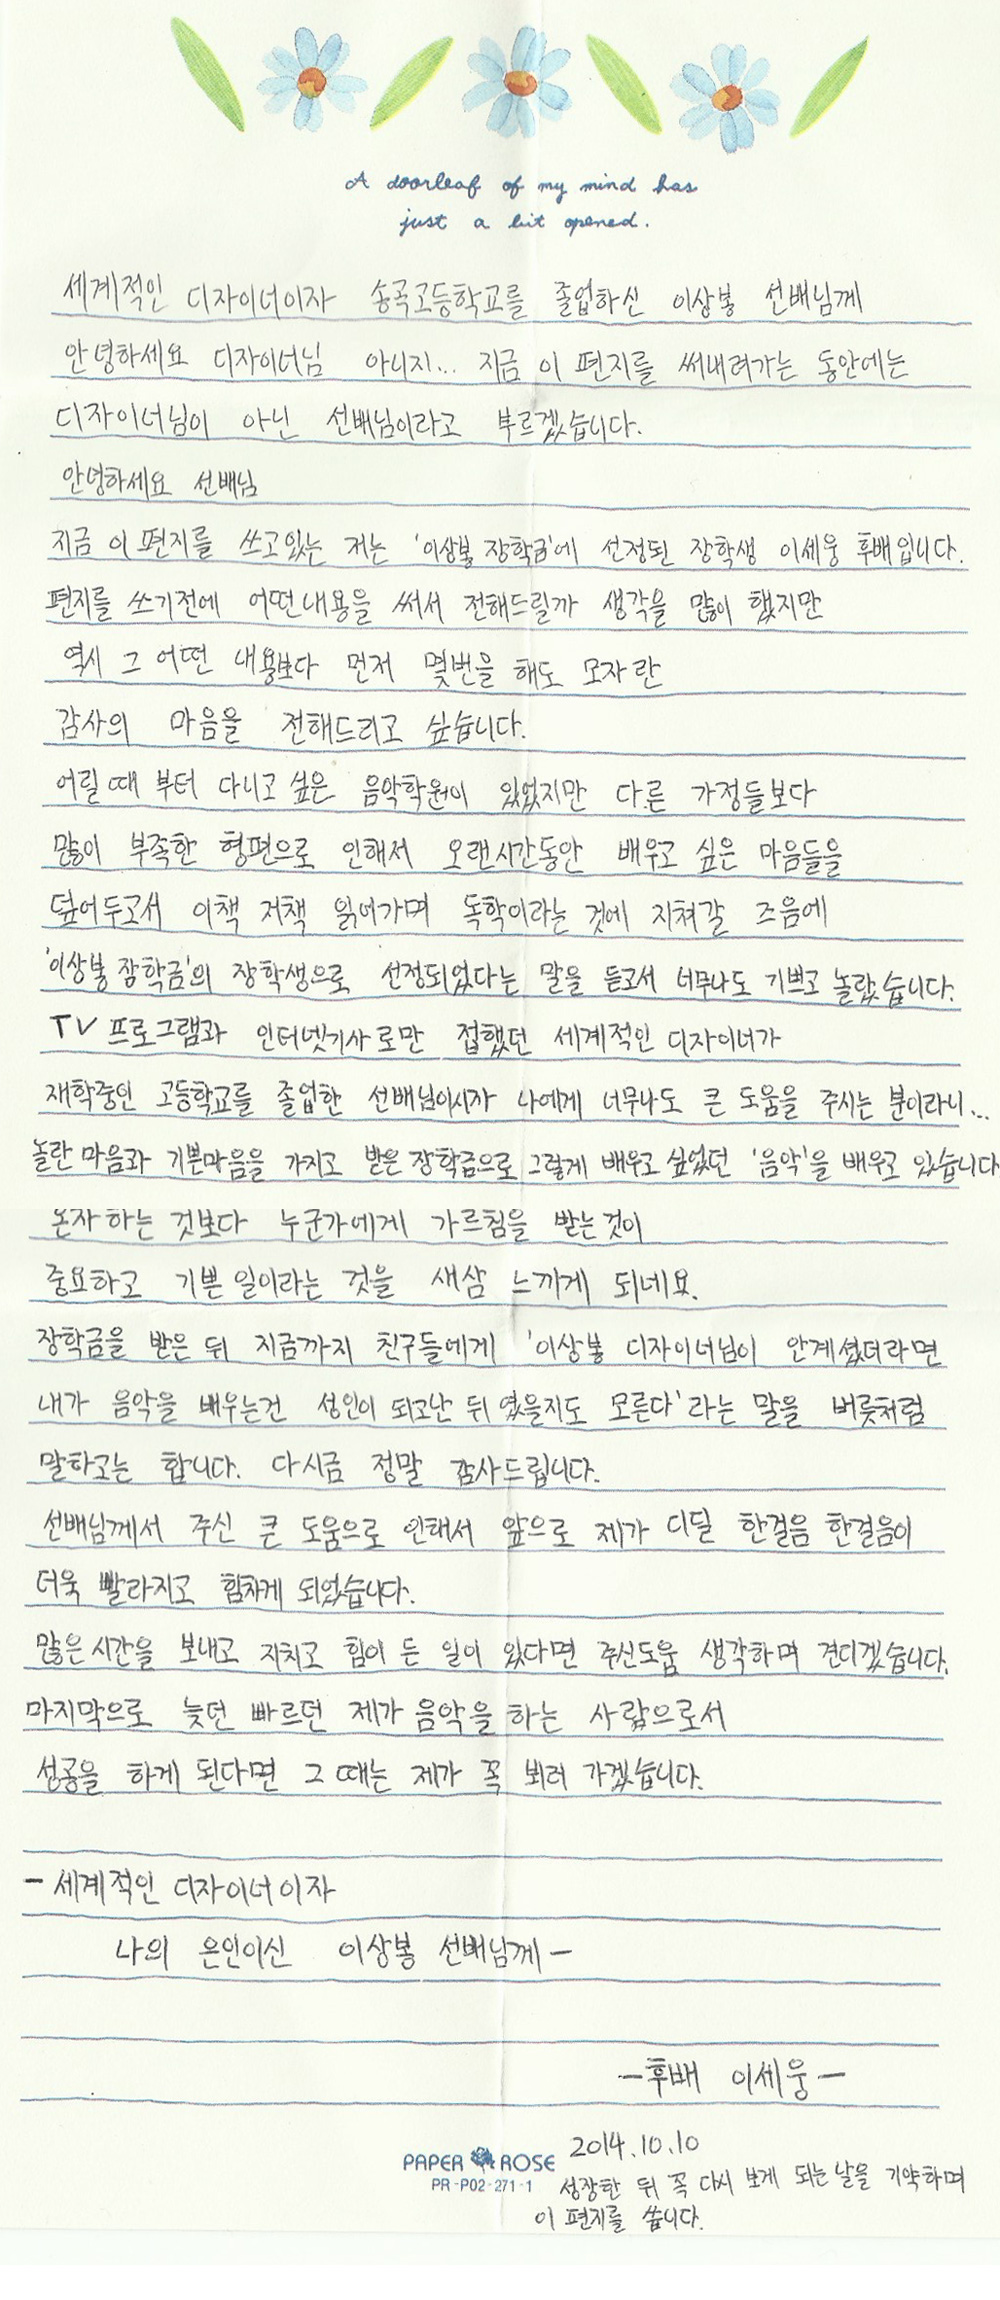 A doorleaf of my mind has
just a bit opened.
세계적인 디자이너이자 송곡고등학교를 졸업하신 이상봉 선배님께
안녕하세요 디자이너님 아니지... 지금 이 편지를 써내려가는 동안에는
디자이너님이 아닌 선배님이라고 부르겠습니다.
안녕하세요 선배님
지금 이 편지를 쓰고있는 저는 '이상봉 장학금'에 선정된 장학생 이세웅 후배입니다.
편지를 쓰기전에 어떤내용을 써서 전해드릴까 생각을 많이 했지만
역시 그 어떤 내용보다 먼저 몇번을 해도 모자란
감사의 마음을 전해드리고 싶습니다.
어릴 때 부터 다니고 싶은 음악학원이 있었지만 다른 가정들보다
많이 부족한 형편으로 인해서 오랜시간동안 배우고 싶은 마음들을
덮어두고서 이책 저책 읽어가며 독학이라는 것에 지쳐갈 즈음에
'이상봉 장학금'의 장학생으로 선정되었다는 말을 듣고서 너무나도 기쁘고 놀랐습니다.
TV 프로그램과 인터넷기사로만 접했던 세계적인 디자이너가
재학중인 고등학교를 졸업한 선배님이시자 나에게 너무나도 큰 도움을 주시는 분이라니...
놀란 마음과 기쁜마음을 가지고 받은 장학금으로 그렇게 배우고 싶었던 '음악'을 배우고 있습니다
혼자 하는 것보다 누군가에게 가르침을 받는것이
중요하고 기쁜 일이라는 것을 새삼 느끼게 되네요.
장학금을 받은 뒤 지금까지 친구들에게 '이상봉 디자이너님이 안계셨더라면
내가 음악을 배우는건 성인이 되고난 뒤 였을지도 모른다'라는 말을 버릇처럼
말하고는 합니다. 다시금 정말 감사드립니다.
선배님께서 주신 큰 도움으로 인해서 앞으로 제가 디딜 한걸음 한걸음이
더욱 빨라지고 힘차게 되었습니다.
많은 시간을 보내고 지치고 힘이 든 일이 있다면 주신도움 생각하며 견디겠습니다.
마지막으로 늦던 빠르던 제가 음악을 하는 사람으로서
성공을 하게 된다면 그 때는 제가 꼭 뵈러 가겠습니다.
- 세계적인 디자이너이자
나의 은인이신 이상봉 선배님께 -
- 후배 이세웅 -
2014.10.10
PAPER ROSE
PR-P02-271-1
성장한 뒤 꼭 다시 보게 되는날을 기약하며
이 편지를 씁니다.